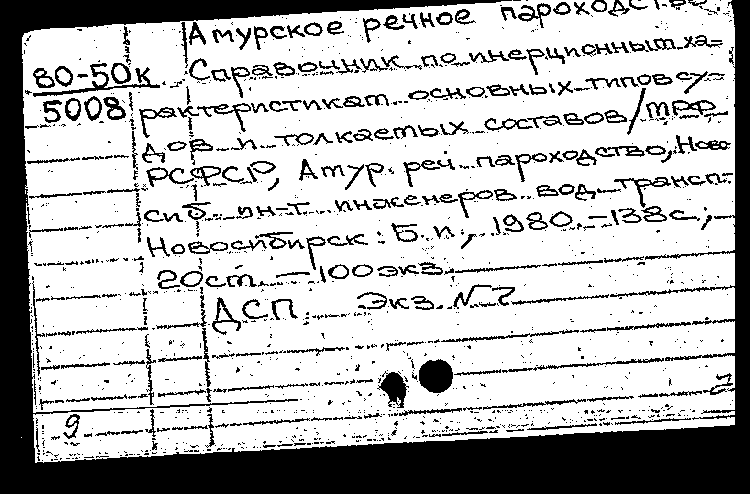 Амурское речное пароходство.
80-50к Справочник по инерционным ха-
5008 рактеристикам основных типов су-
дов и толкаемых составов/МРФ
РСФСР, Амур. реч. пароходство, Ново-
сиб. ин-т инженеров вод. трансп.-
Новосибирск: Б.и., 1980.-138с.;
20см. - 100экз.
ДСП. Экз. №2
9